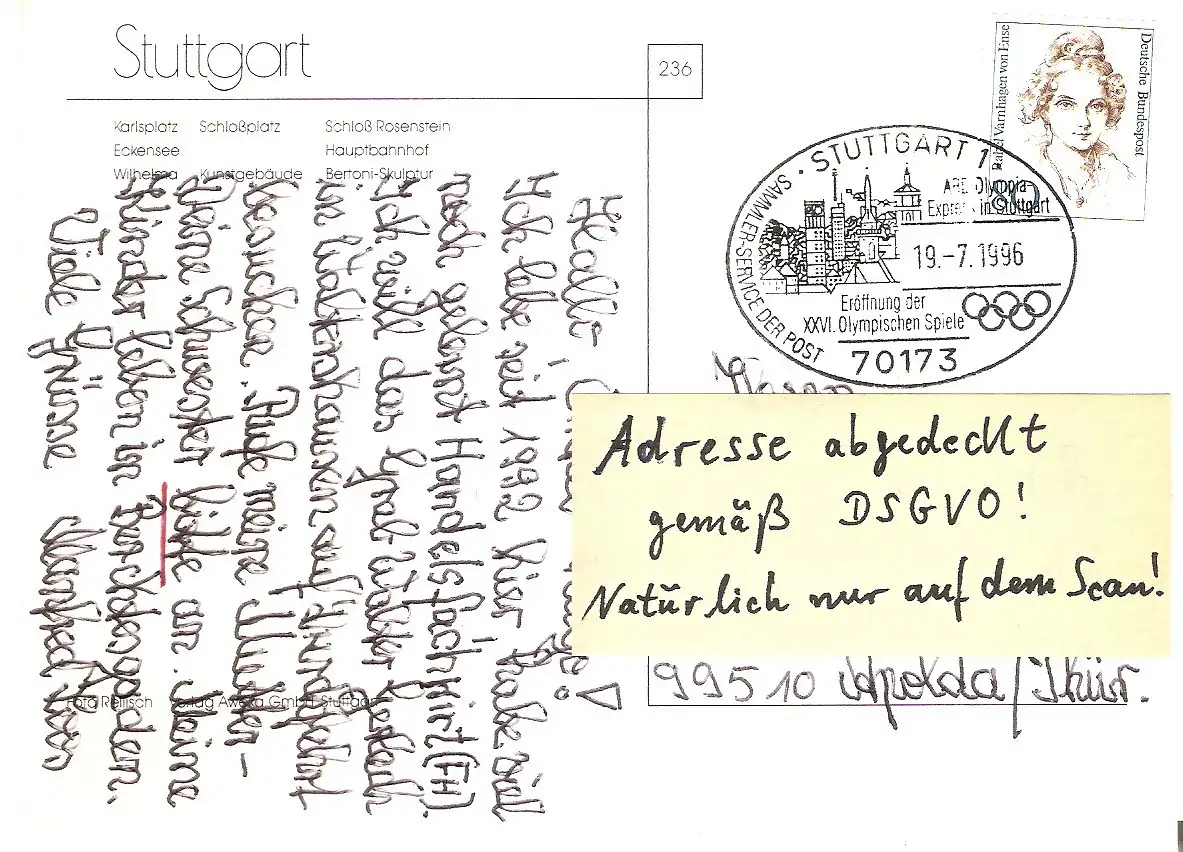 Stuttgart
236
Karlsplatz Schloßplatz Schloß Rosenstein
Eckensee Hauptbahnhof
Wilhelma Kunstgebäude Bertoni-Skulptur
Hallo
Ich lebe seit 1992 hier, habe viel
noch gelernt Handelsfachwirt (FH).
Ich will das Grab
in Waltershausen auf
besuchen. Rufe meine Mutter –
Deine Schwester bitte an. Meine
Kinder leben in
Viele Grüsse Manfred
Foto Rellisch Verlag Awexa GmbH Stuttgart
Deutsche Bundespost
Rahel Varnhagen von Ense
STUTTGART 1
SAMMLER-SERVICE DER POST
ARD Olympia-
Express in Stuttgart
19.-7.1996
Eröffnung der
XXVI. Olympischen Spiele
70173
Adresse abgedeckt
gemäß DSGVO!
Natürlich nur auf dem Scan!
99510 Apolda/Thür.